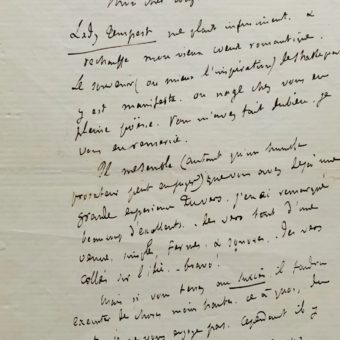 Lady Tempest me plait infiniment. &
réchauffe mon vieux coeur romantique.
Le souvenir (ou mieux l'inspiration) de Shakespear
y est manifeste. on nage chez vous en
pleine poësie. Vous m'avez fait du bien. je
vous en remercie.
Il me semble (autant qu'un humble
prosateur peut en juger) que vous avez déjà une
grande expérience du vers. j'en ai remarqué
beaucoup d'excellents. des vers tout d'une
venue, simples, fermes & sonores. des vers
collés sur l'idée. bravo!
Mais si vous tenez au succès il faudra
de choses moins hautes. ce à quoi,
vous engage pas. Cependant il y